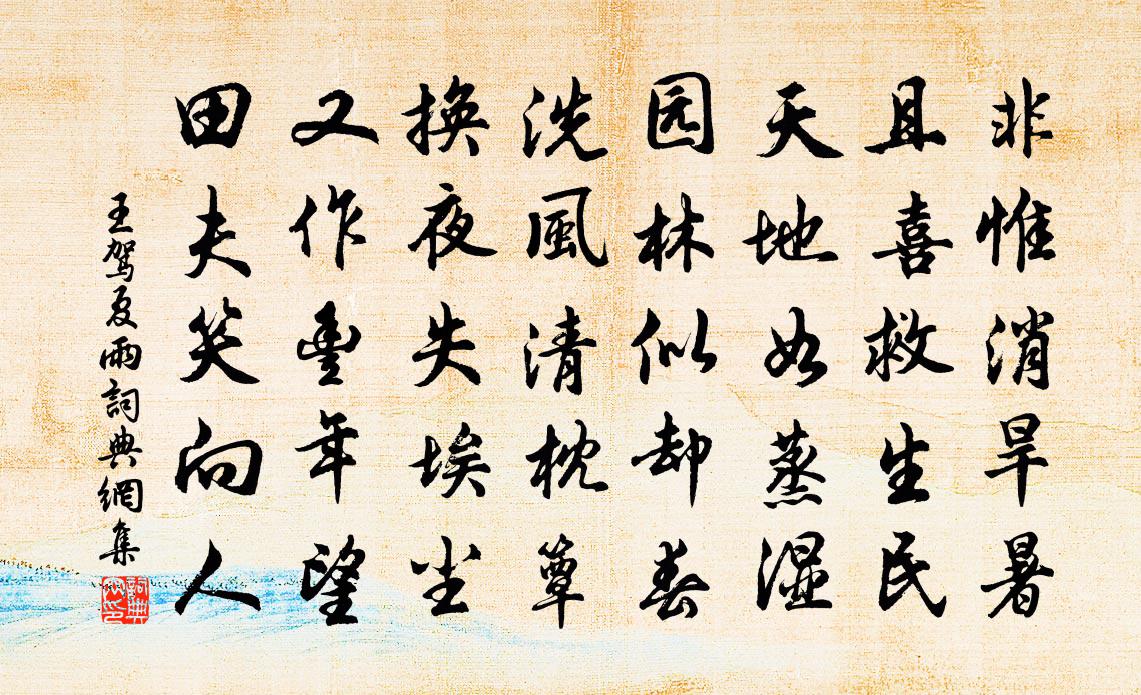 非惟消旱暑
且喜救生民
天地如蒸湿
园林似却春
洗風清枕簟
換夜失埃尘
又作豊年望
田夫笑向人
王駕夏雨詞典網集